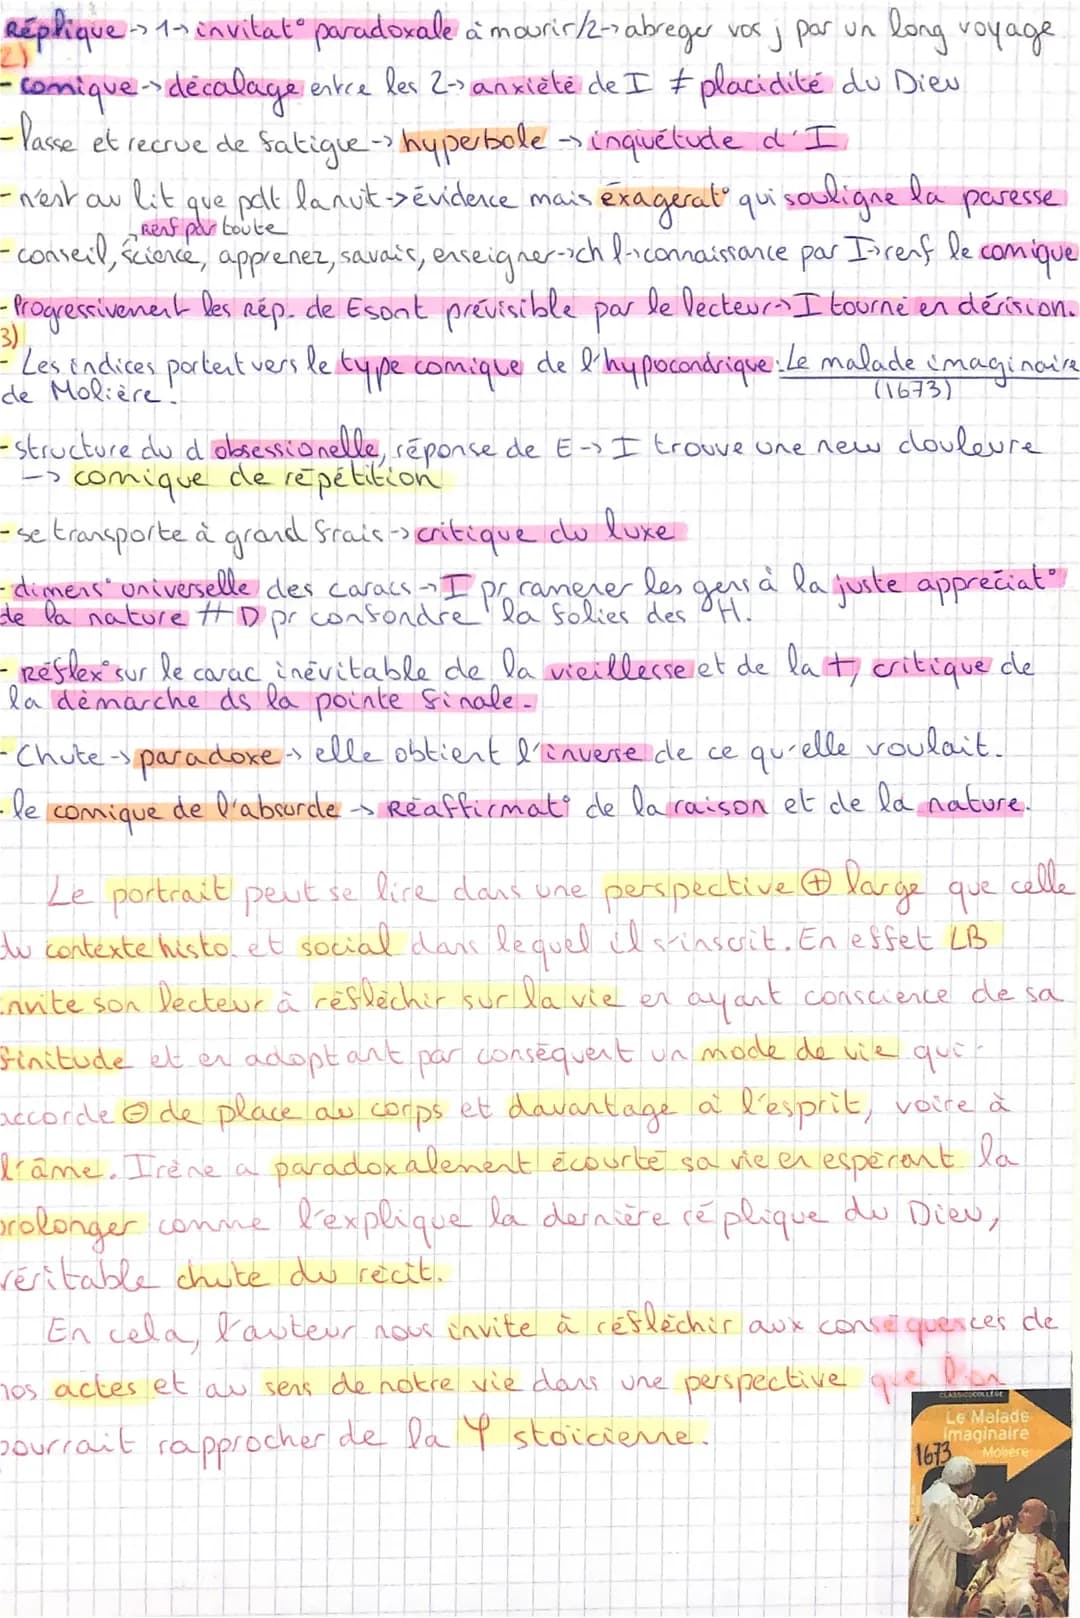 Réplique -> 1-> invitat° paradoxale à mourir/2-> abreger vos j par un long voyage
2)
- comique -> décalage entre les 2-> anxiété de I ≠ placidité du Dieu
- lasse et recrue de fatigue -> hyperbole -> inquiétude d'I
- n'est au lit que pdt la nuit -> évidence mais éxagerat° qui souligne la paresse
renf par toute
- conseil, science, apprenez, savais, enseigner -> ch l -> connaissance par I -> renf le comique
- Progressivement les rép. de E sont prévisible par le lecteur -> I tourné en dérision.
3)
- Les indices portent vers le type comique de l'hypocondrique : Le malade imaginaire
de Molière. (1673)
- structure du d obsessionelle, réponse de E -> I trouve une new douleure
-> comique de répétition
- se transporte à grand frais -> critique du luxe
- dimens° universelle des caracs -> I pr ramener les gens à la juste appréciat°
de la nature # D pr confondre la folies des H.
- Réflex° sur le carac inévitable de la vieillesse et de la †, critique de
la démarche ds la pointe finale.
- Chute -> paradoxe -> elle obtient l'inverse de ce qu'elle voulait.
- le comique de l'absurde -> Réaffirmat° de la raison et de la nature.
Le portrait peut se lire dans une perspective ⊕ large que celle
du contexte histo. et social dans lequel il s'inscrit. En effet LB
invite son lecteur à réfléchir sur la vie en ayant conscience de sa
finitude et en adoptant par conséquent un mode de vie qui
accorde ⊖ de place au corps et davantage à l'esprit, voire à
l'âme. Irène a paradoxalement écourté sa vie en espérant la
prolonger comme l'explique la dernière réplique du Dieu,
véritable chute du récit.
En cela, l'auteur nous invite à réfléchir aux conséquences de
nos actes et au sens de notre vie dans une perspective que l'on
pourrait rapprocher de la φ stoïcienne.
CLASSICOCOLLÈGE
Le Malade
imaginaire
Molière
1673